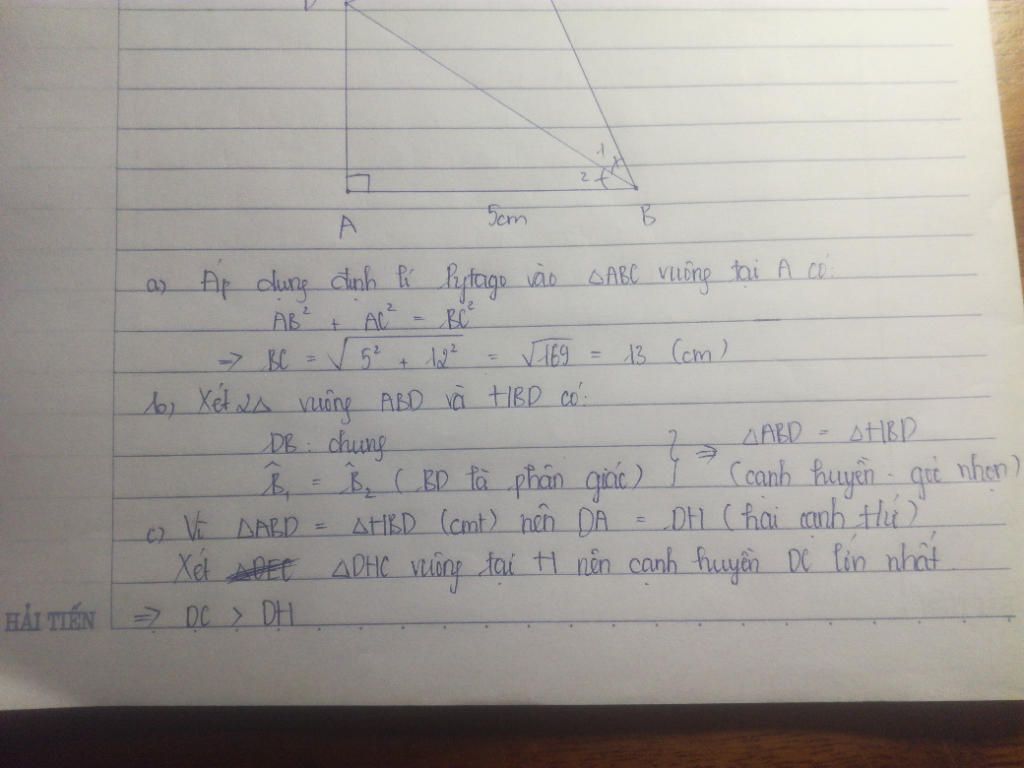 1
2
A
5cm
B
a) Áp dụng định lí Pytago vào △ABC vuông tại A có:
AB² + AC² = BC²
=> BC = √(5² + 12²) = √169 = 13 (cm)
b) Xét 2△ vuông ABD và HBD có:
DB: chung
B̂₁ = B̂₂ (BD là phân giác) } => △ABD = △HBD
(cạnh huyền - góc nhọn)
c) Vì △ABD = △HBD (cmt) nên DA = DH (hai cạnh t/ứ)
Xét △DHC vuông tại H nên cạnh huyền DC lớn nhất
=> DC > DH
HẢI TIẾN